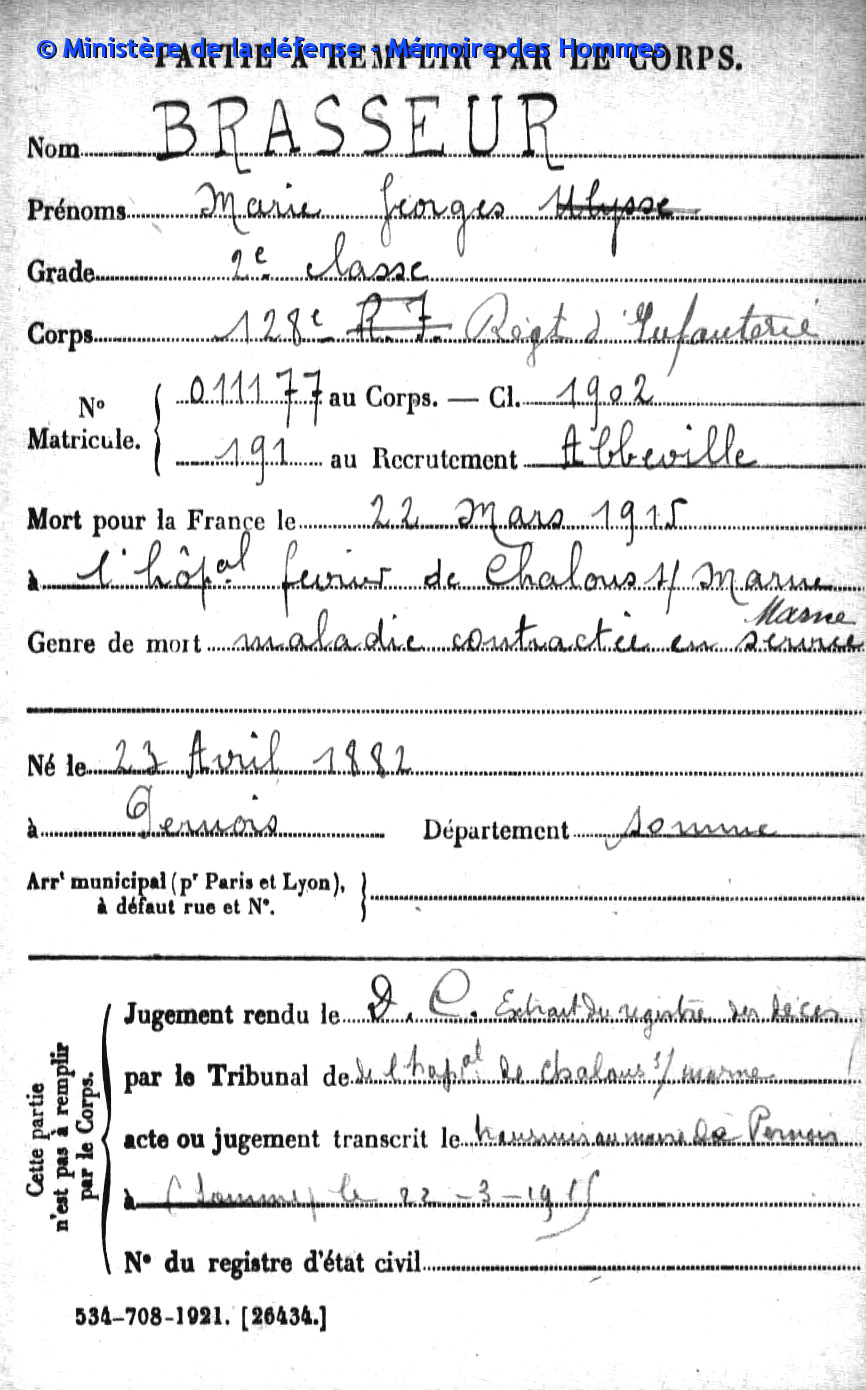 © Ministère de la défense - Mémoire des Hommes
PARTIE À REMPLIR PAR LE CORPS.
Nom BRASSEUR
Prénoms Marie Georges Ulysse
Grade 2e classe
Corps 128e R.I. Régt d'Infanterie
No Matricule. 011177 au Corps. — Cl. 1902
191 au Recrutement Abbeville
Mort pour la France le 22 Mars 1915
à l'hôpal de Chalons s/ Marne
Marne
Genre de mort maladie contractée en service
Né le 23 Avril 1882
à Pernois Département Somme
Arrt municipal (pr Paris et Lyon),
à défaut rue et No.
Cette partie
n'est pas à remplir
par le Corps.
Jugement rendu le D. C. Extrait du registre des décès
par le Tribunal de de l'hopal de Chalons s/ marne
acte ou jugement transcrit le transmis au maire de Pernois
à (Somme) le 22-3-1915
No du registre d'état civil
534-708-1921. [26434.]